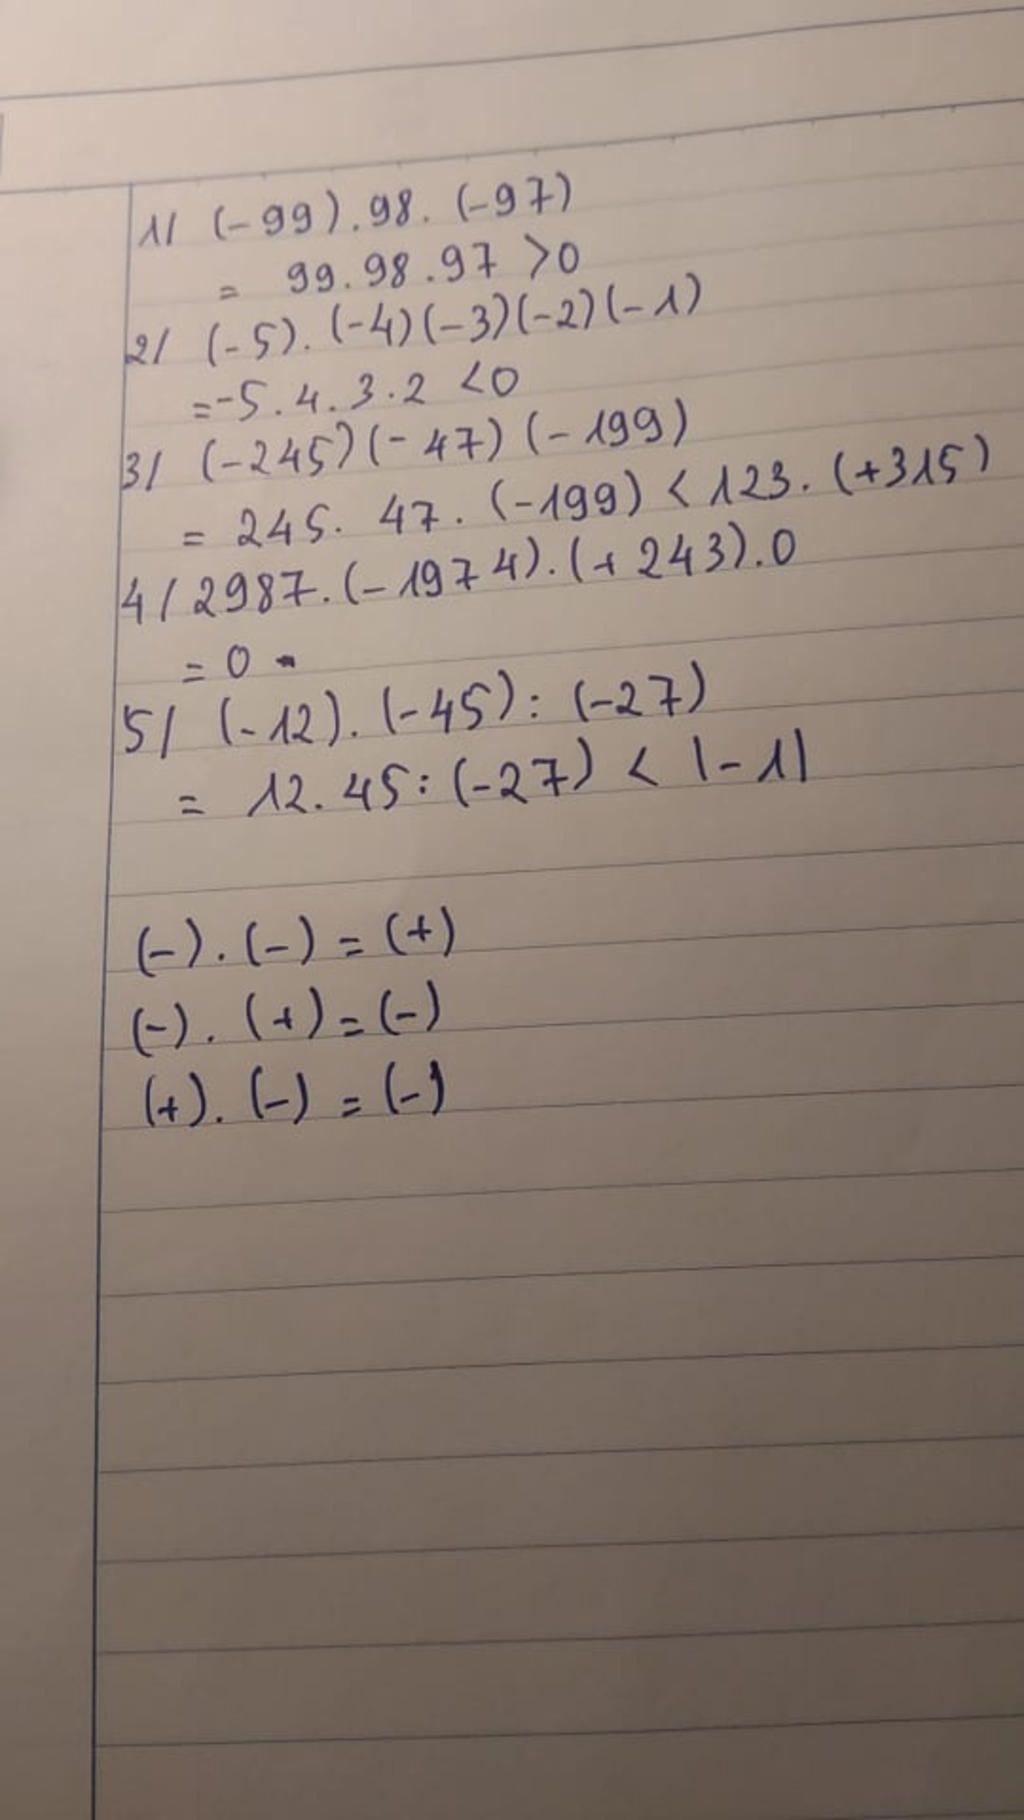 1/ (-99).98.(-97)
= 99.98.97 >0
2/ (-5).(-4)(-3)(-2)(-1)
=-5.4.3.2 <0
3/ (-245)(-47)(-199)
= 245.47.(-199) < 123.(+315)
4/ 2987.(-1974).(+243).0
= 0
5/ (-12).(-45):(-27)
= 12.45:(-27) < |-1|
(-).(-) = (+)
(-).(+) = (-)
(+).(-) = (-)